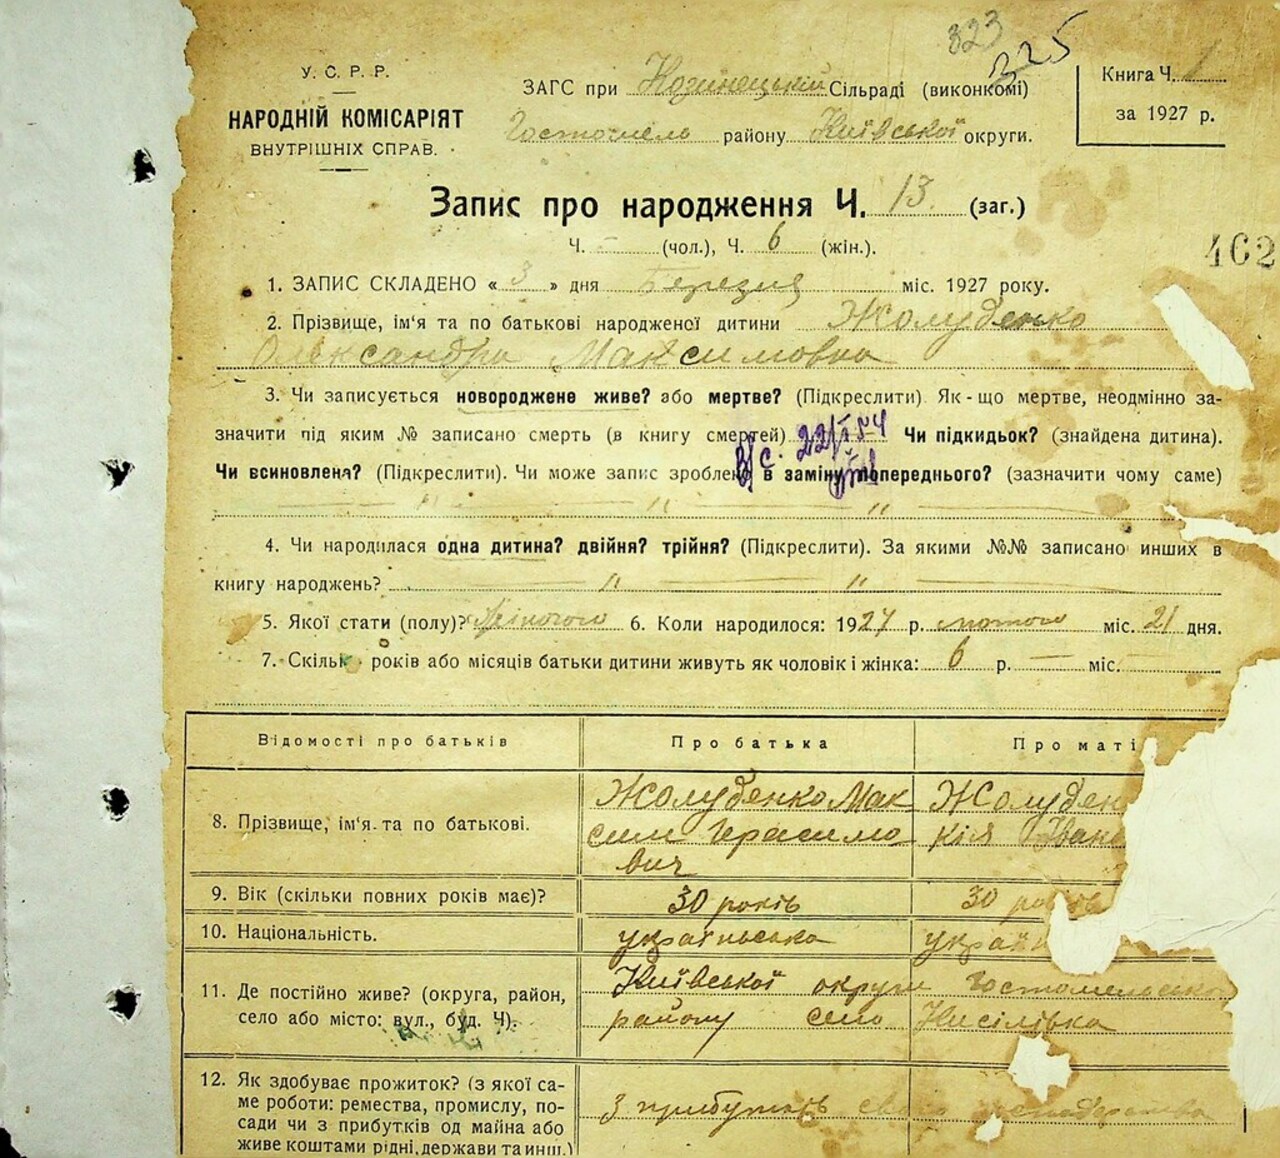 323
325
У. С. Р. Р.
НАРОДНІЙ КОМІСАРІЯТ
ВНУТРІШНІХ СПРАВ.
ЗАГС при Козинецькій Сільраді (виконкомі)
Гостомель району Київської округи.
Книга Ч. 1
за 1927 р.
Запис про народження Ч. 13 (заг.)
Ч. – (чол.), Ч. 6 (жін.).
462
1. ЗАПИС СКЛАДЕНО « 3 » дня Березня міс. 1927 року.
2. Прізвище, ім'я та по батькові народженої дитини Жолуденко
Олександра Максимовна
3. Чи записується новороджене живе? або мертве? (Підкреслити). Як-що мертве, неодмінно за-
значити під яким № записано смерть (в книгу смертей) Чи підкидьок? (знайдена дитина).
в/с. 22/I 54
Чи всиновлена? (Підкреслити). Чи може запис зроблено в заміну попереднього? (зазначити чому саме)
— " — " — "
4. Чи народилася одна дитина? двійня? трійня? (Підкреслити). За якими №№ записано инших в
книгу народжень? — " — " —
5. Якої стати (полу)? Жіночого 6. Коли народилося: 1927 р. лютого міс. 21 дня.
7. Скільк років або місяців батьки дитини живуть як чоловік і жінка: 6 р. — міс. —
Відомості про батьків Про батька Про маті
8. Прізвище, ім'я та по батькові.
Жолуденко Мак
сим Герасимо
вич
Жолуден
кія Івано
9. Вік (скільки повних років має)? 30 років 30 років
10. Національність. українська україн
11. Де постійно живе? (округа, район,
село або місто: вул., буд. Ч).
Київської округи Гостомельсько
району село Кисілівка
12. Як здобуває прожиток? (з якої са-
ме роботи: ремества, промислу, по-
сади чи з прибутків од майна або
живе коштами рідні, держави та инш.)
З прибутків свого господарства